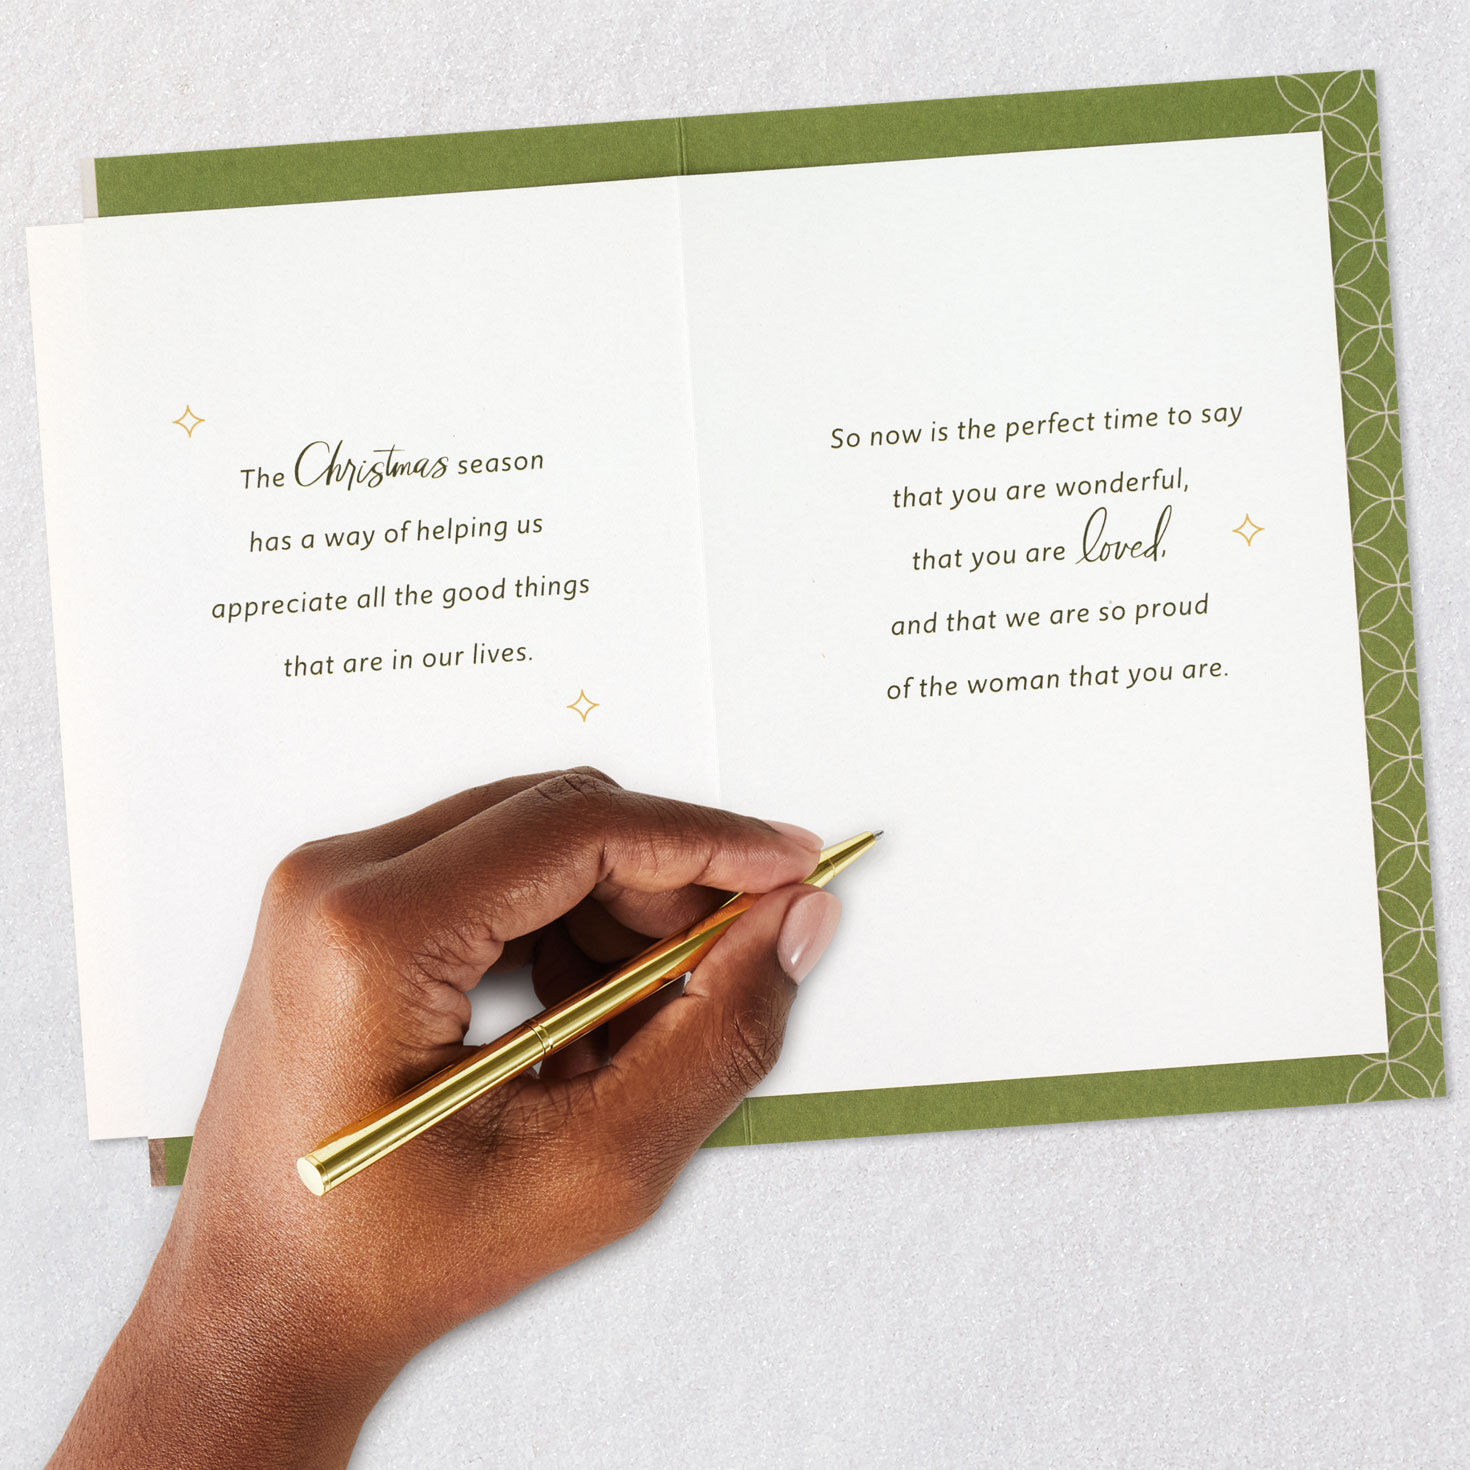 The Christmas season
has a way of helping us
appreciate all the good things
that are in our lives.
So now is the perfect time to say
that you are wonderful,
that you are loved,
and that we are so proud
of the woman that you are.